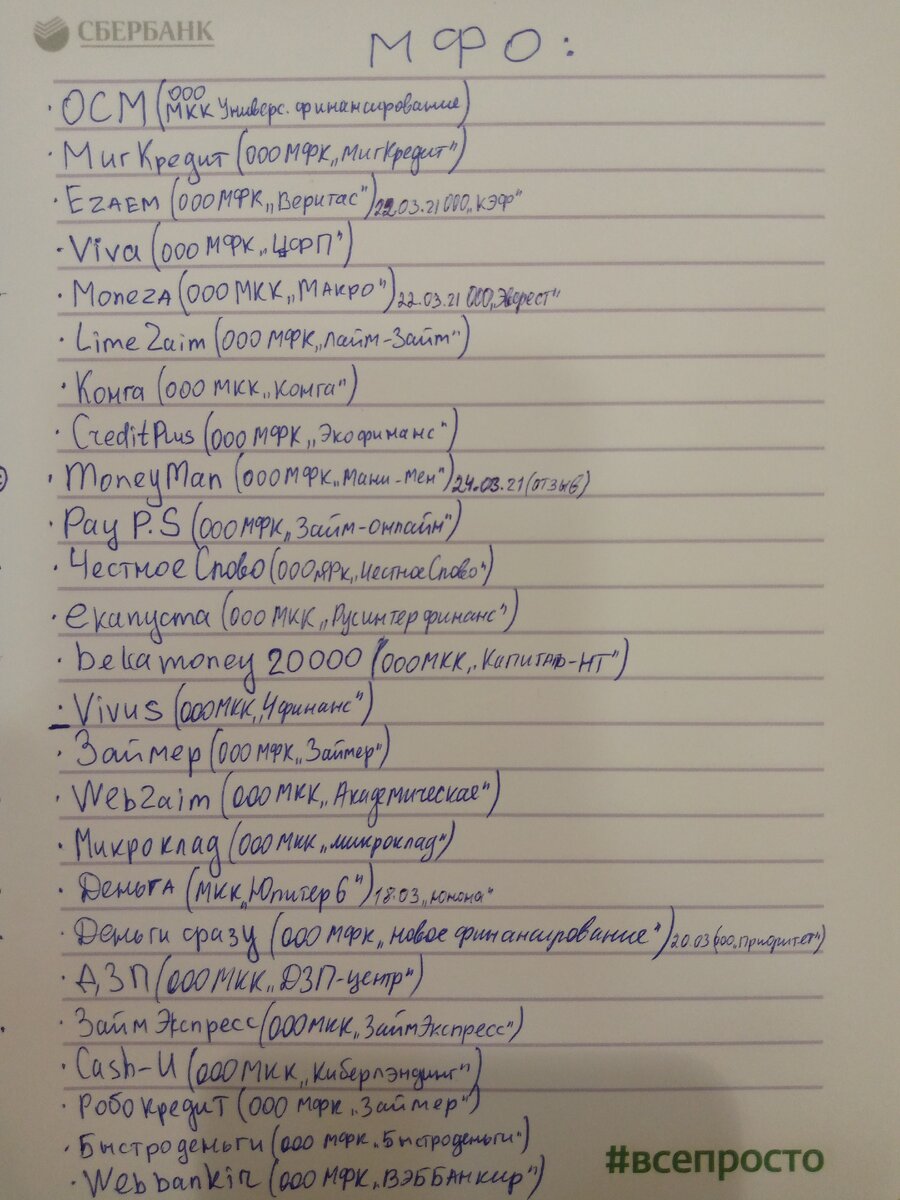 СБЕРБАНК
МФО:
· ОСМ (ООО МКК Универс. финансирование)
· МигКредит (ООО МФК „МигКредит")
· EZAEM (ООО МФК „Веритас") 22.03.21 ООО „КЭФ"
· Viva (ООО МФК „ЦФП")
· Moneza (ООО МКК „Макро") 22.03.21 ООО „Эверест"
· Lime Zaim (ООО МФК „Лайм-Займ")
· Конга (ООО МКК „Конга")
· CreditPlus (ООО МФК „Экофинанс")
· MoneyMan (ООО МФК „Мани-мен") 24.03.21 (отзыв)
· Pay P.S (ООО МФК „Займ-онлайн")
· Честное Слово (ООО МФК „Честное Слово")
· екапуста (ООО МКК „Русинтерфинанс")
· beka money 20000 (ООО МКК „Капиталъ-НТ")
· Vivus (ООО МКК „4финанс")
· Займер (ООО МФК „Займер")
· WebZaim (ООО МКК „Академическая")
· Микроклад (ООО МКК „микроклад")
· Деньга (МКК „Юпитер 6") 18.03 „Юнона"
· Деньги сразу (ООО МФК „новое финансирование") 20.03 (ООО „Приоритет")
· ДЗП (ООО МКК „ДЗП-центр")
· Займ Экспресс (ООО МКК „ЗаймЭкспресс")
· Cash-U (ООО МКК „Киберлэндинг")
· Робокредит (ООО МФК „Займер")
· Быстроденьги (ООО МФК „Быстроденьги")
· Webbankir (ООО МФК „ВЭББАНКИР")
#всепросто